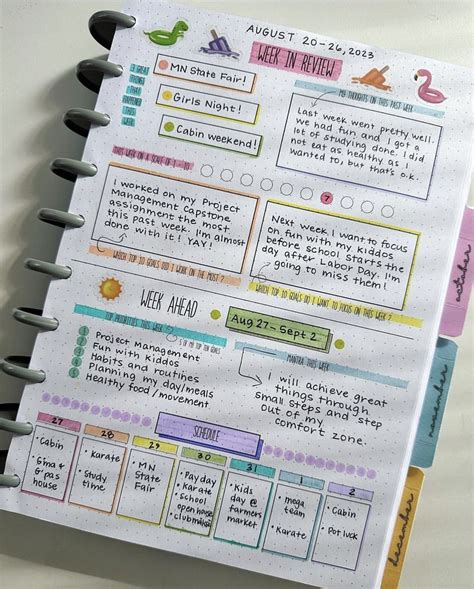 AUGUST 20-26, 2023
WEEK IN REVIEW
3 GREAT
THINGS
THAT
HAPPENED
THIS
WEEK
MN State Fair!
Girls Night!
Cabin weekend!
MY THOUGHTS ON THIS PAST WEEK
Last week went pretty well.
We had fun and I got a
lot of studying done. I did
not eat as healthy as I
wanted to, but that's o.k.
THIS WEEK ON A SCALE OF 1 - 10
7
I worked on my Project
Management Capstone
assignment the most
this past week. I'm almost
done with it! YAY!
WHICH TOP 10 GOALS DID I WORK ON THE MOST?
Next week I want to focus
on fun with my kiddos
before school starts the
day after Labor Day. I'm
going to miss them!
WHICH TOP 10 GOALS DO I WANT TO FOCUS ON THIS WEEK?
WEEK AHEAD
Aug 27-Sept 2
TOP PRIORITIES THIS WEEK
5 OF MY TOP TEN GOALS
Project Management
Fun with kiddos
Habits and routines
Planning my day/meals
Healthy food/movement
MANTRA THIS WEEK
I will achieve great
things through
small steps and step
out of my
comfort zone.
SCHEDULE
27
Cabin
Gma &
G'pas
house
28
Karate
Study
time
29
MN
State
Fair
30
Payday
Karate
School
open house
31
Kids
day @
farmers
market
1
mega
team
Karate
2
Cabin
Pot luck
october
november
december